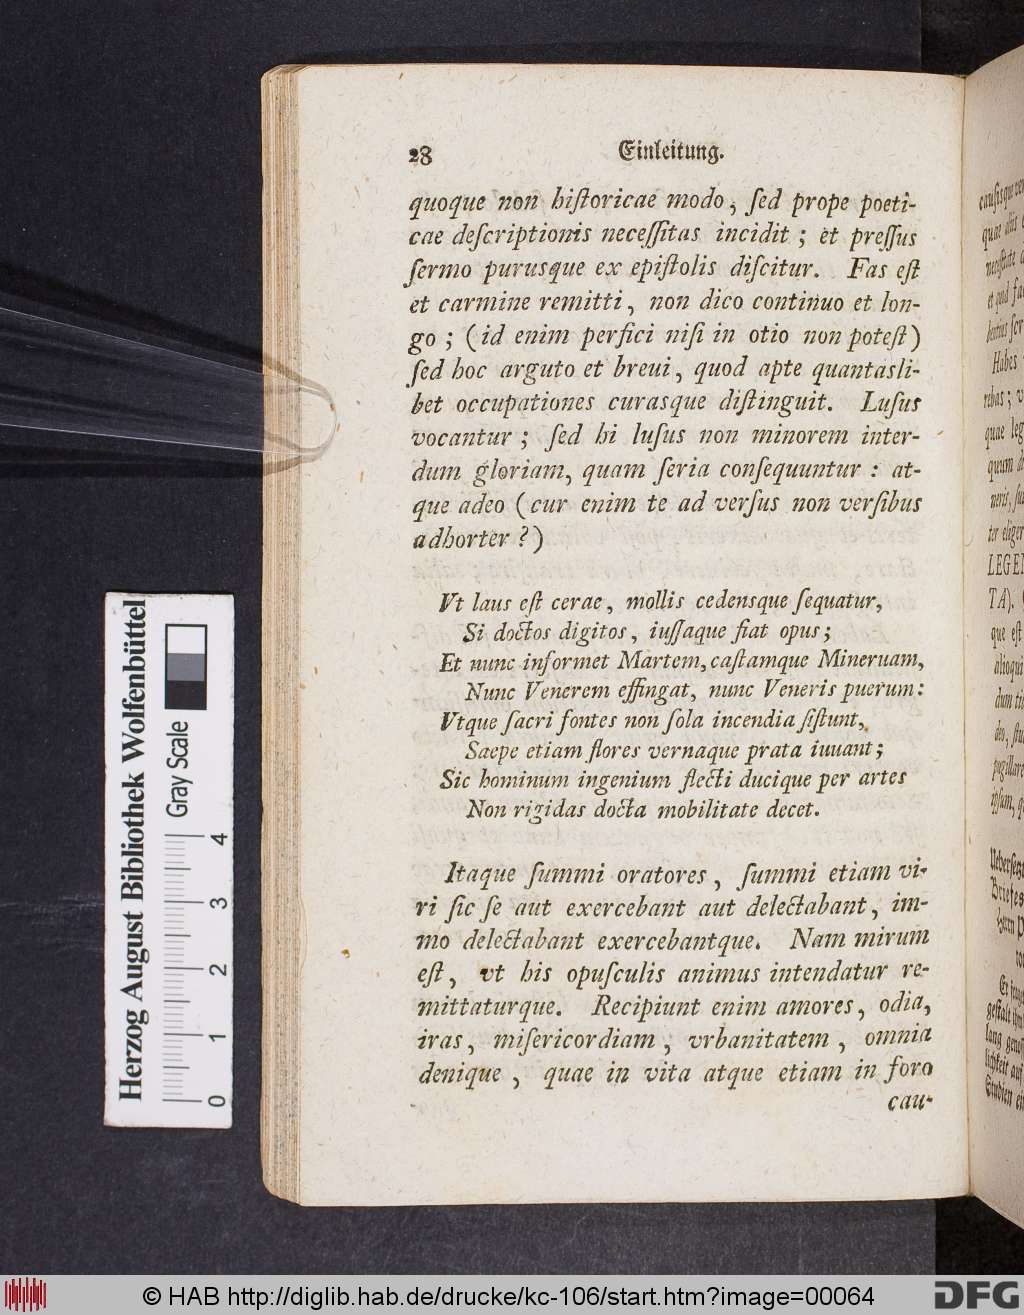 28 Einleitung.
quoque non hiſtoricae modo, ſed prope poeti-
cae deſcriptionis neceſſitas incidit; et preſſus
ſermo purusque ex epiſtolis diſcitur. Fas eſt
et carmine remitti, non dico continuo et lon-
go; (id enim perfici niſi in otio non poteſt)
ſed hoc arguto et breui, quod apte quantasli-
bet occupationes curasque diſtinguit. Luſus
vocantur; ſed hi luſus non minorem inter-
dum gloriam, quam ſeria conſequuntur: at-
que adeo (cur enim te ad verſus non verſibus
adhorter?)
Vt laus eſt cerae, mollis cedensque ſequatur,
Si doctos digitos, iuſſaque fiat opus;
Et nunc informet Martem, caſtamque Mineruam,
Nunc Venerem effingat, nunc Veneris puerum:
Vtque ſacri fontes non ſola incendia ſiſtunt,
Saepe etiam flores vernaque prata iuuant;
Sic hominum ingenium flecti ducique per artes
Non rigidas docta mobilitate decet.
Itaque ſummi oratores, ſummi etiam vi-
ri ſic ſe aut exercebant aut delectabant, im-
mo delectabant exercebantque. Nam mirum
eſt, vt his opuſculis animus intendatur re-
mittaturque. Recipiunt enim amores, odia,
iras, miſericordiam, vrbanitatem, omnia
denique, quae in vita atque etiam in foro
cau-
quae aliis
et quod
Habes
quae
LEGEN
TA).
que eſt
alioqui
Herzog August Bibliothek Wolfenbüttel
Gray Scale
0 1 2 3 4
© HAB http://diglib.hab.de/drucke/kc-106/start.htm?image=00064
DFG